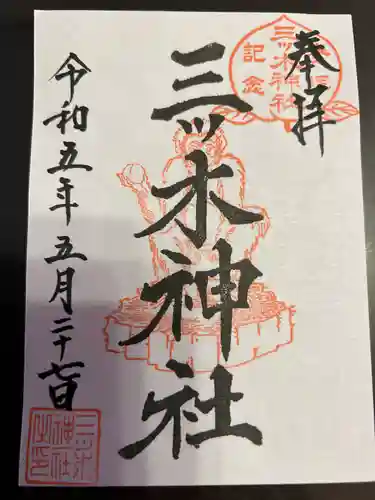 奉拝
三ッ木神社
令和五年五月二十七日
三ッ木神社
記念
三ッ木神社之印